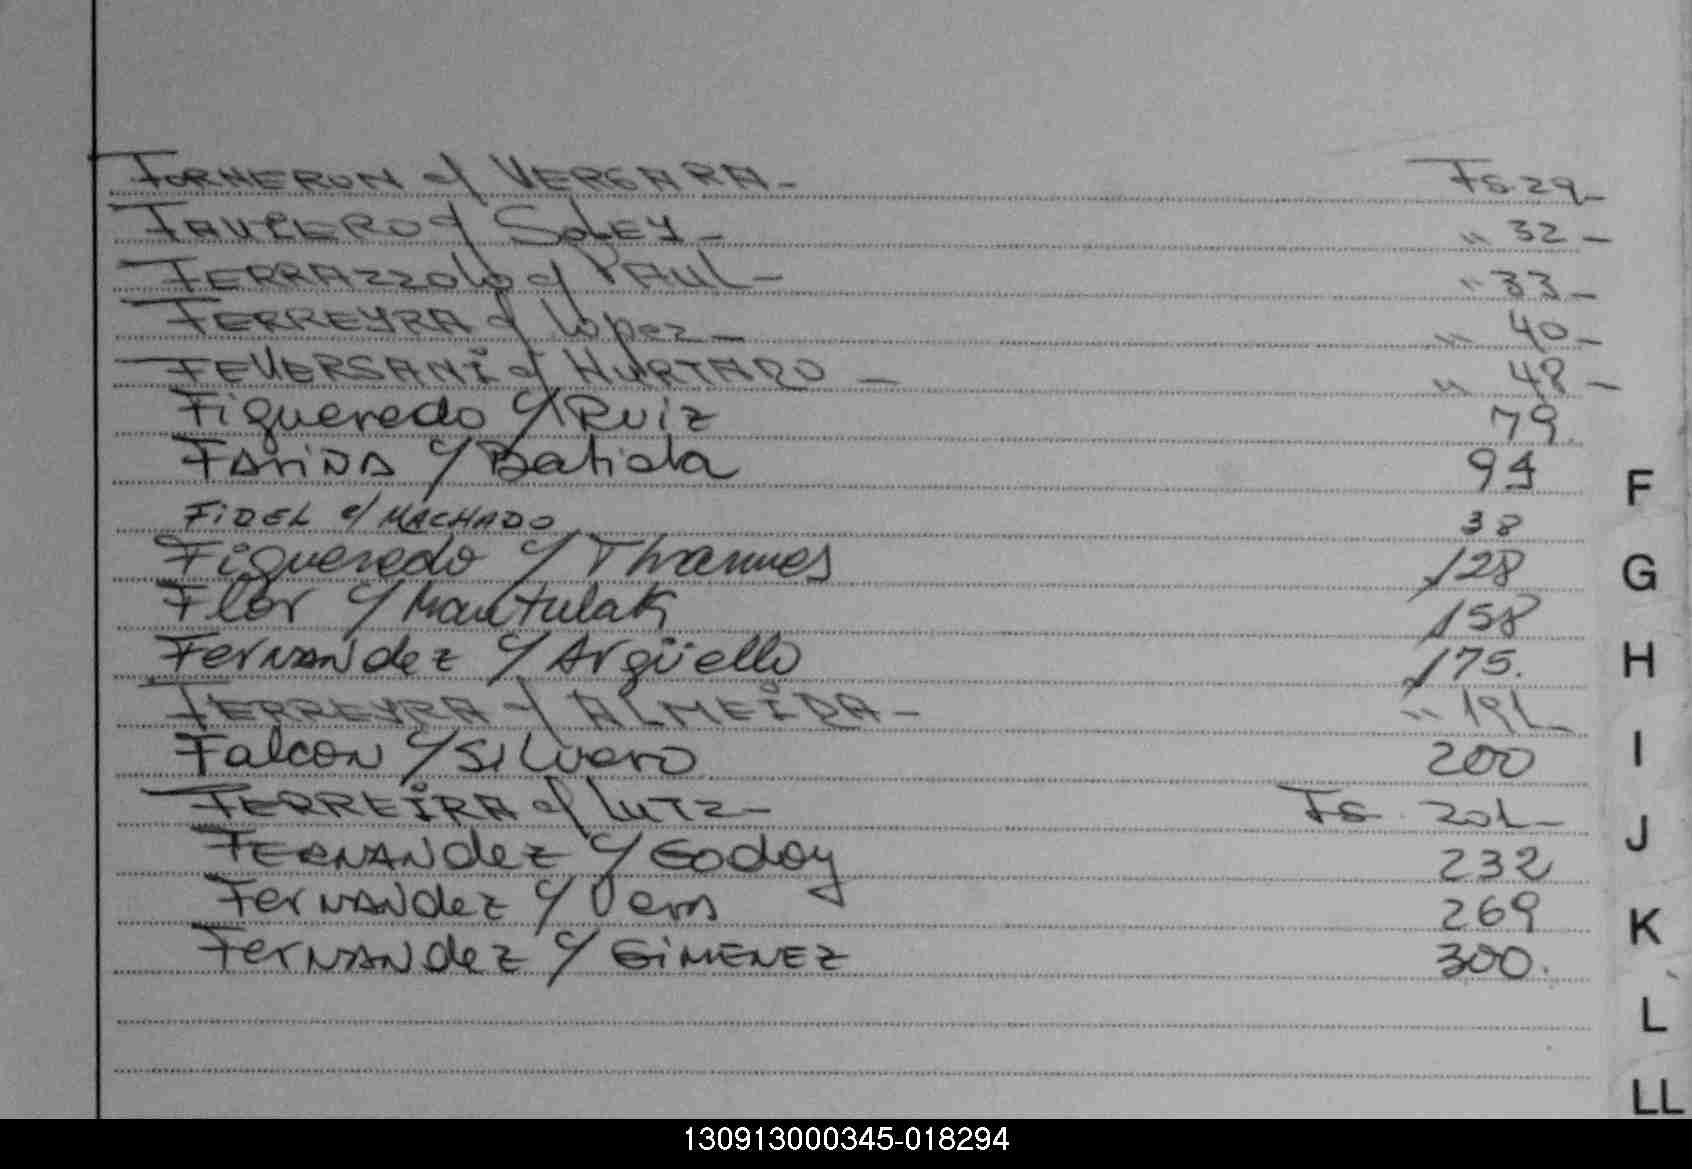 FORNERON c/ VERGARA - Fs. 29 -
c/ SOLEY - " 32 -
FERRAZZOLO c/ PAUL - " 33 -
FERREYRA c/ LOPEZ - " 40 -
FEVERSANI c/ HURTADO - " 48 -
Figueredo c/ Ruiz 79.
FARIÑA c/ Batista 94
FIDEL c/ MACHADO 38
Figueredo c/ Thrammes 128
Flor c/ Mantulak 158
FerNANdez c/ Argüello 175.
FERREYRA c/ ALMEIDA - " 191 -
Falcon c/ Silvero 200
FERREIRA c/ LUTZ - Fs. 201 -
FERNANdez c/ Godoy 232
FerNANdez c/ Vera 269
FerNANdez c/ GiMENEZ 300.
F
G
H
I
J
K
L
LL
130913000345-018294